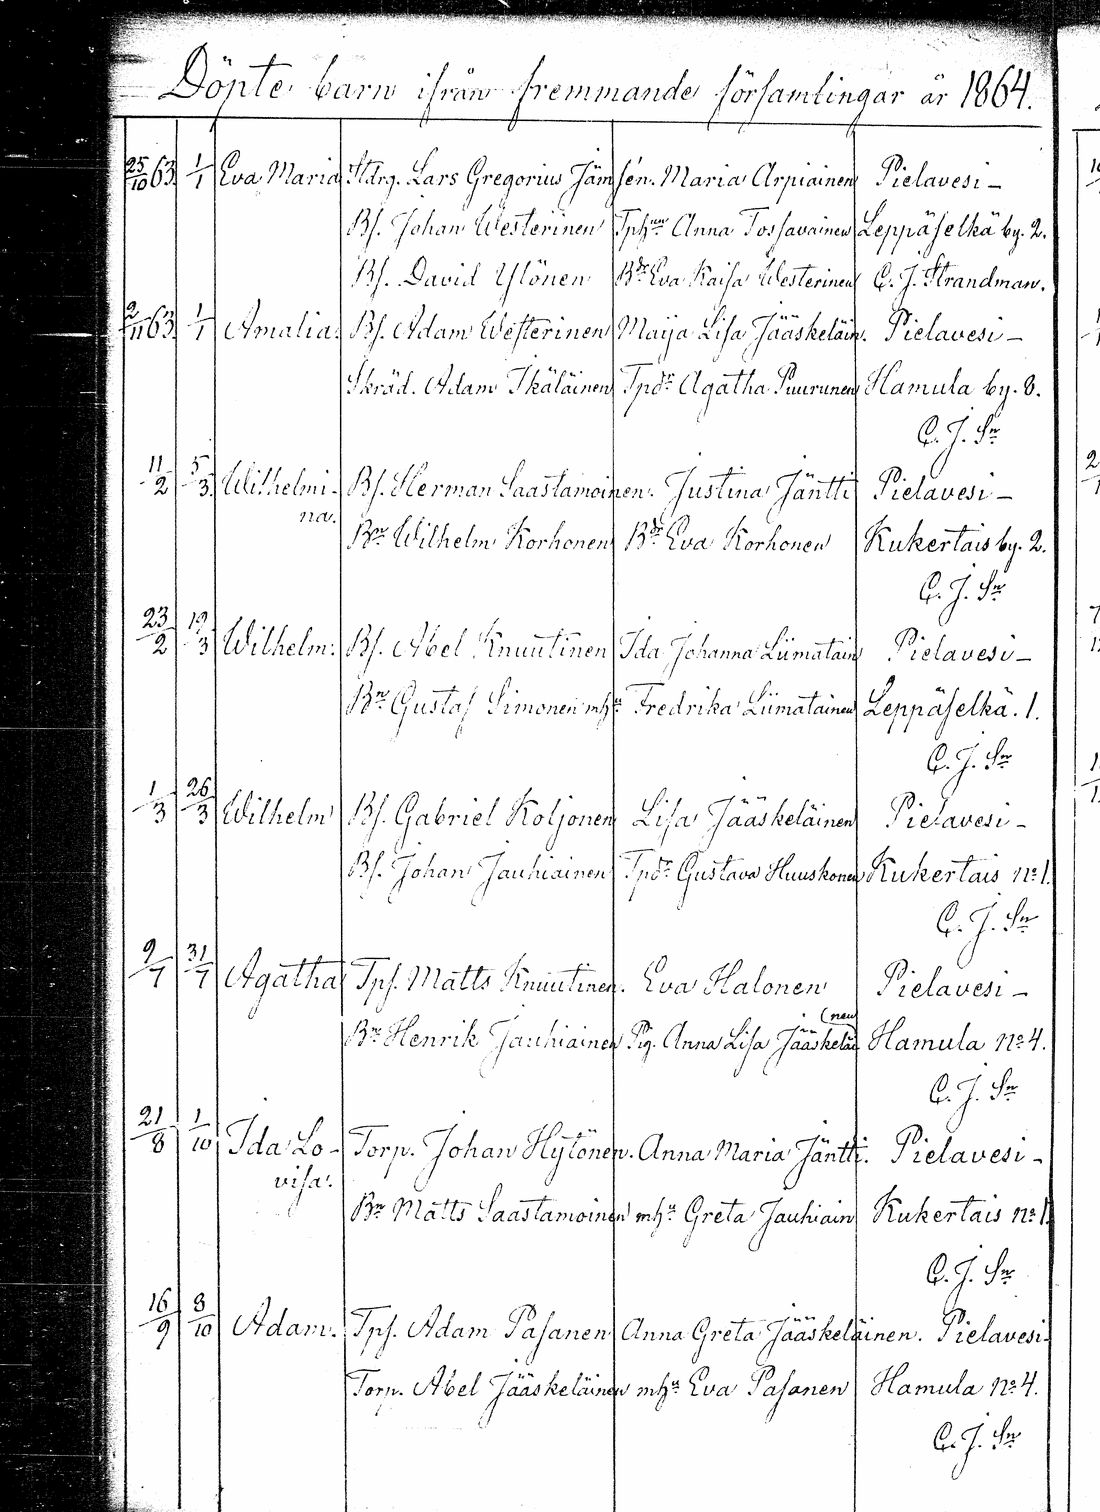 Döpte barn ifrån fremmande församlingar år 1864.
25/10 63. 1/1 Eva Maria Hdrg. Lars Gregorius Jämsén. Maria Arpiainen Pielavesi –
Bf. Johan Westerinen Tphun Anna Tossavainen Leppäselkä by. 2.
Bf. David Ylönen Bdr Eva Kaisa Westerinen C. J. Strandman.
2/11 63. 1/1 Amalia. Bf. Adam Westerinen Maija Lisa Jääskeläin. Pielavesi –
Skräd. Adam Ikäläinen Tpdr Agatha Puurunen Hamula by. 8.
C. J. Sn
11/2 5/3. Wilhelmi- Bf. Herman Saastamoinen. Justina Jäntti Pielavesi –
na. Bn Wilhelm Korhonen Bdr Eva Korhonen Kukertais by. 2.
C. J. Sn
23/2 19/3 Wilhelm. Bf. Abel Knuutinen Ida Johanna Liimatain Pielavesi –
Bn Gustaf Simonen mhu Fredrika Liimatainen Leppäselkä. 1.
C. J. Sn
1/3 26/3 Wilhelm Bf. Gabriel Koljonen Lisa Jääskeläinen Pielavesi –
Bf. Johan Jauhiainen Tpdr Gustava Huuskonen Kukertais no 1.
C. J. Sn
9/7 31/7 Agatha Tpf. Matts Knuutinen. Eva Halonen Pielavesi –
Bn Henrik Jauhiainen Pig. Anna Lisa Jääskeläi (nen Hamula no 4.
C. J. Sn
21/8 1/10 Ida Lo- Torp. Johan Hytönen. Anna Maria Jäntti. Pielavesi –
visa. Bn Matts Saastamoinen mhu Greta Jauhiain Kukertais no 1.
C. J. Sn
16/9 8/10 Adam. Tpf. Adam Pasanen Anna Greta Jääskeläinen. Pielavesi.
Torp. Abel Jääskeläinen mhu Eva Pasanen Hamula no 4.
C. J. Sn